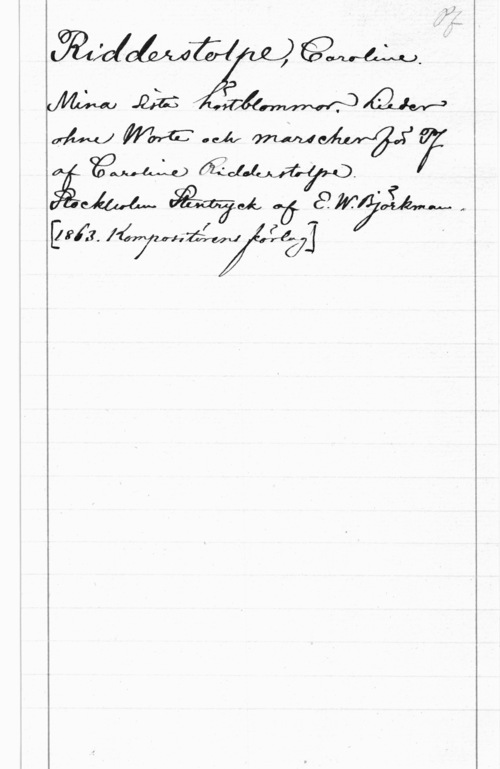 Pf
Ridderstolpe, Caroline.
Mina sista höstblommor. Lieder
ohne Worte och marscher för Pf
af Caroline Ridderstolpe.
Stockholm Stentryck af E. W. Björkman.
[1863. Kompositörens förlag]